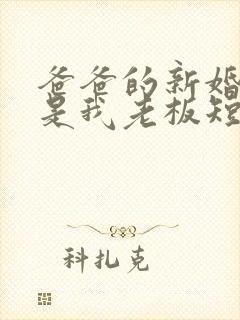 爸爸的新婚
是我老板短
科扎克